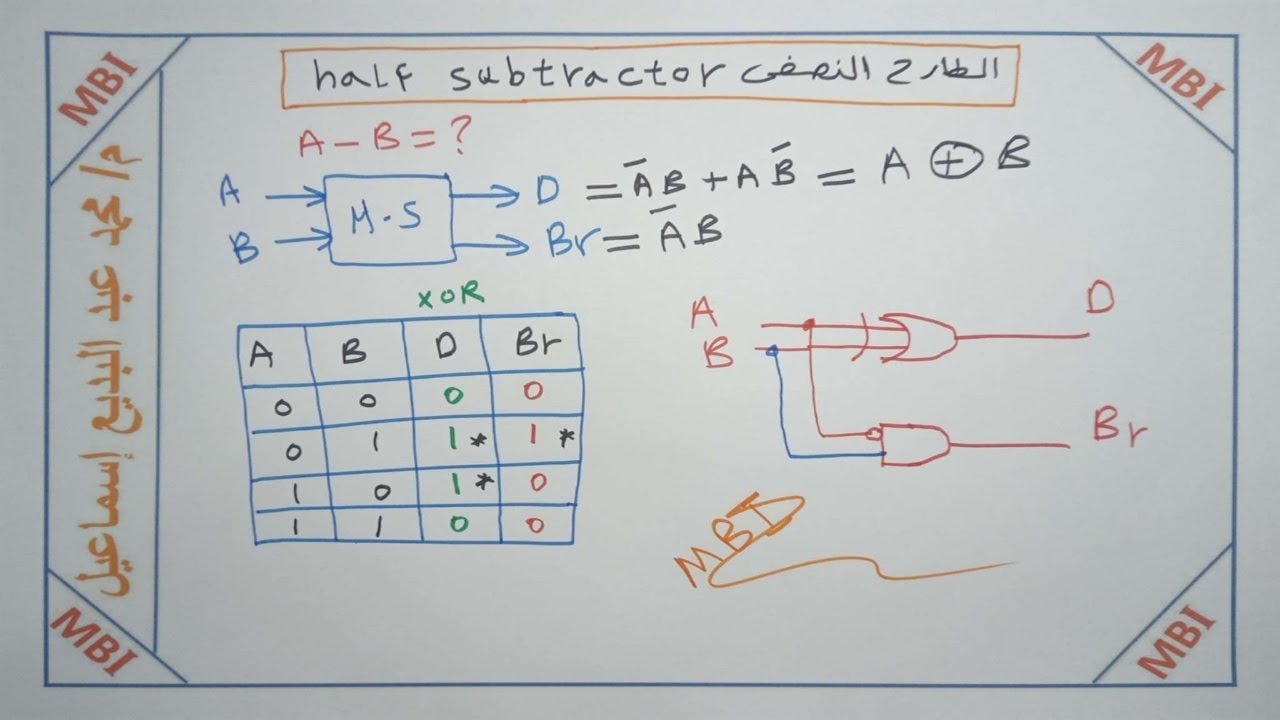 MBI
MBI
half subtractor الطارح النصفى
م/ محمد عبد البديع إسماعيل
A - B = ?
A
B
H.S
D = A̅B + AB̅ = A ⊕ B
Br = A̅B
XOR
A B D Br
0 0 0 0
0 1 1* 1*
1 0 1* 0
1 1 0 0
A
B
D
Br
MBI
MBI
MBI